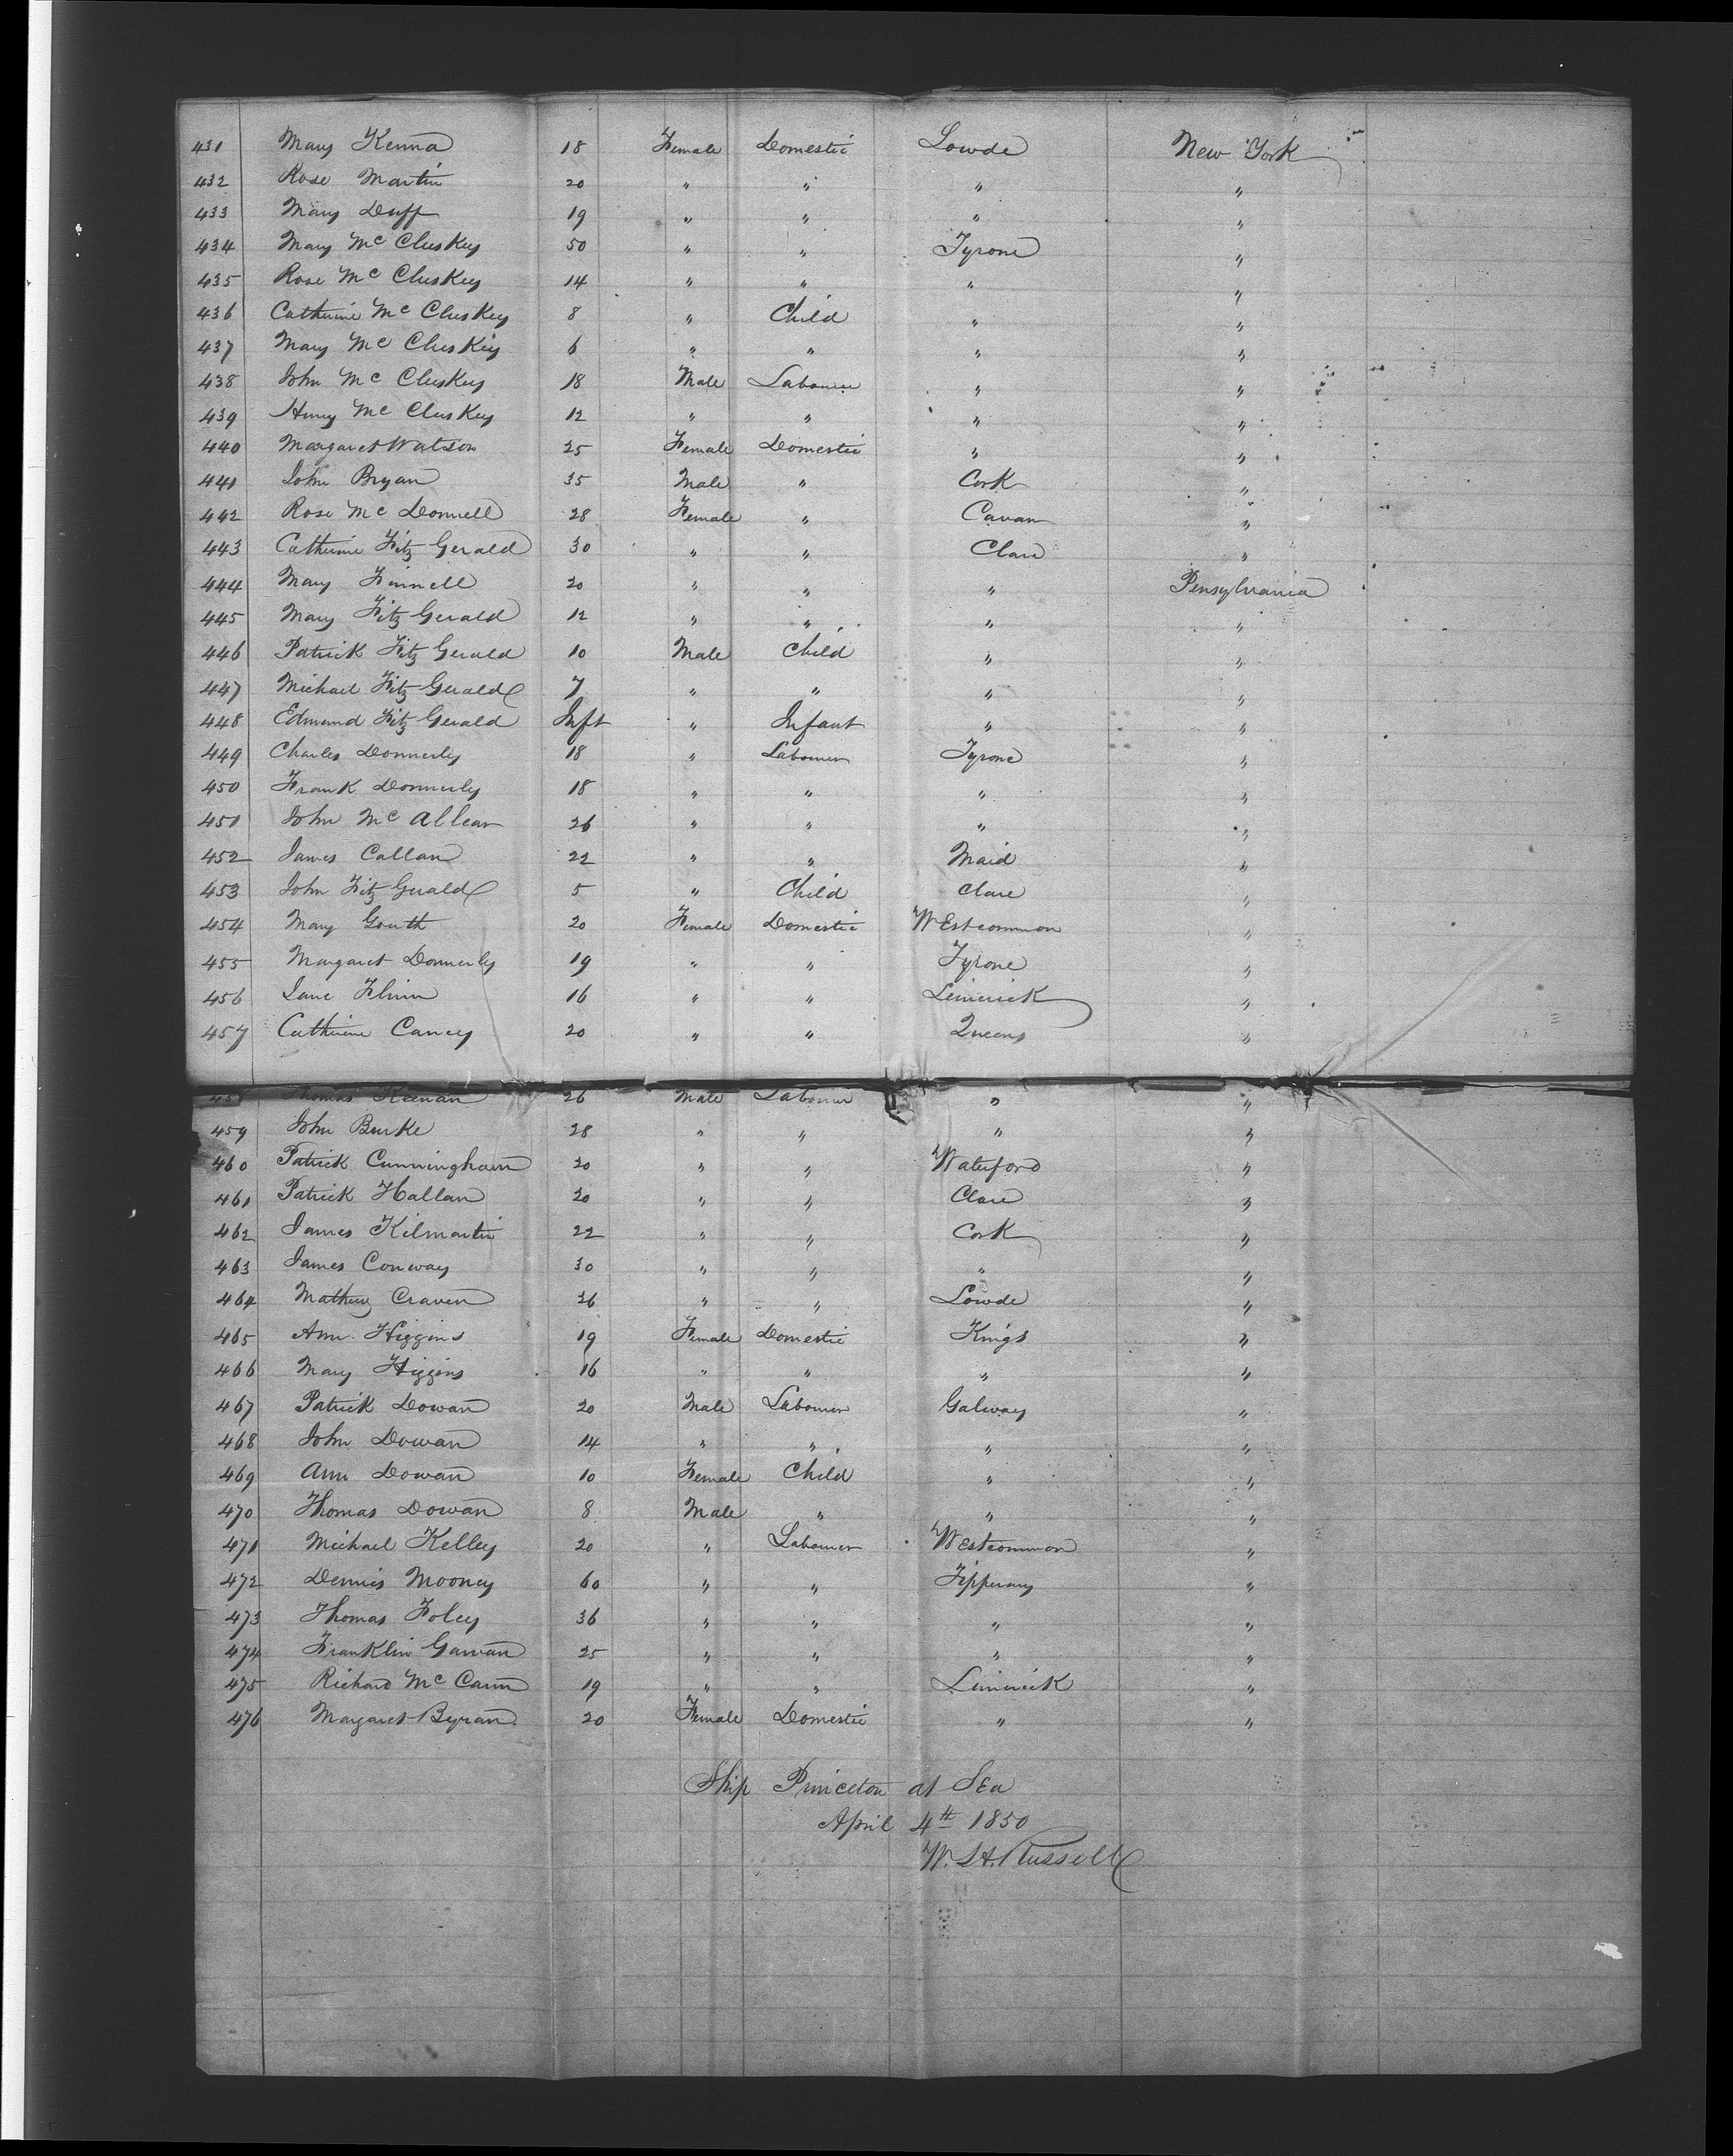 431 Mary Kenna 18 Female Domestic Lowde New York
432 Rose Martin 20 " " " "
433 Mary Duff 19 " " " "
434 Mary Mc Cluskey 50 " " Tyrone "
435 Rose Mc Cluskey 14 " " " "
436 Catherine Mc Cluskey 8 " Child " "
437 Mary Mc Cluskey 6 " " " "
438 John Mc Cluskey 18 Male Labourer " "
439 Henry Mc Cluskey 12 " " " "
440 Margaret Watson 25 Female Domestic " "
441 John Bryan 35 Male " Cork "
442 Rose Mc Donnell 28 Female " Cavan "
443 Catherine Fitz Gerald 30 " " Clare "
444 Mary Finnell 20 " " " Pensylvania
445 Mary Fitz Gerald 12 " " " "
446 Patrick Fitz Gerald 10 Male Child " "
447 Michael Fitz Gerald 7 " " " "
448 Edmund Fitz Gerald Inft " Infant " "
449 Charles Donnerly 18 " Labourer Tyrone "
450 Frank Donnerly 18 " " " "
451 John Mc Allear 26 " " " "
452 James Callan 22 " " Maid "
453 John Fitz Gerald 5 " Child Clare "
454 Mary Gouth 20 Female Domestic WEstcommon "
455 Margaret Donnerly 19 " " Tyrone "
456 Jane Flinn 16 " " Limerick "
457 Catherine Cancy 20 " " Queens "
458 Thomas Keenan 26 Male Labourer " "
459 John Burke 28 " " " "
460 Patrick Cunningham 20 " " Waterford "
461 Patrick Hallan 20 " " Clare "
462 James Kilmartin 22 " " Cork "
463 James Conway 30 " " " "
464 Mathew Craven 26 " " Lowde "
465 Ann Higgins 19 Female Domestic Kings "
466 Mary Higgins 16 " " " "
467 Patrick Dowan 20 Male Labourer Galway "
468 John Dowan 14 " " " "
469 Ann Dowan 10 Female Child " "
470 Thomas Dowan 8 Male " " "
471 Michael Kelley 20 " Labourer WEstcommon "
472 Dennis Mooney 60 " " Tipperary "
473 Thomas Foley 36 " " " "
474 Franklin Gawan 25 " " " "
475 Richard Mc Cann 19 " " Limerick "
476 Margaret Byran 20 Female Domestic " "
Ship Princeton at SEa
April 4th 1850
W. H. Russell